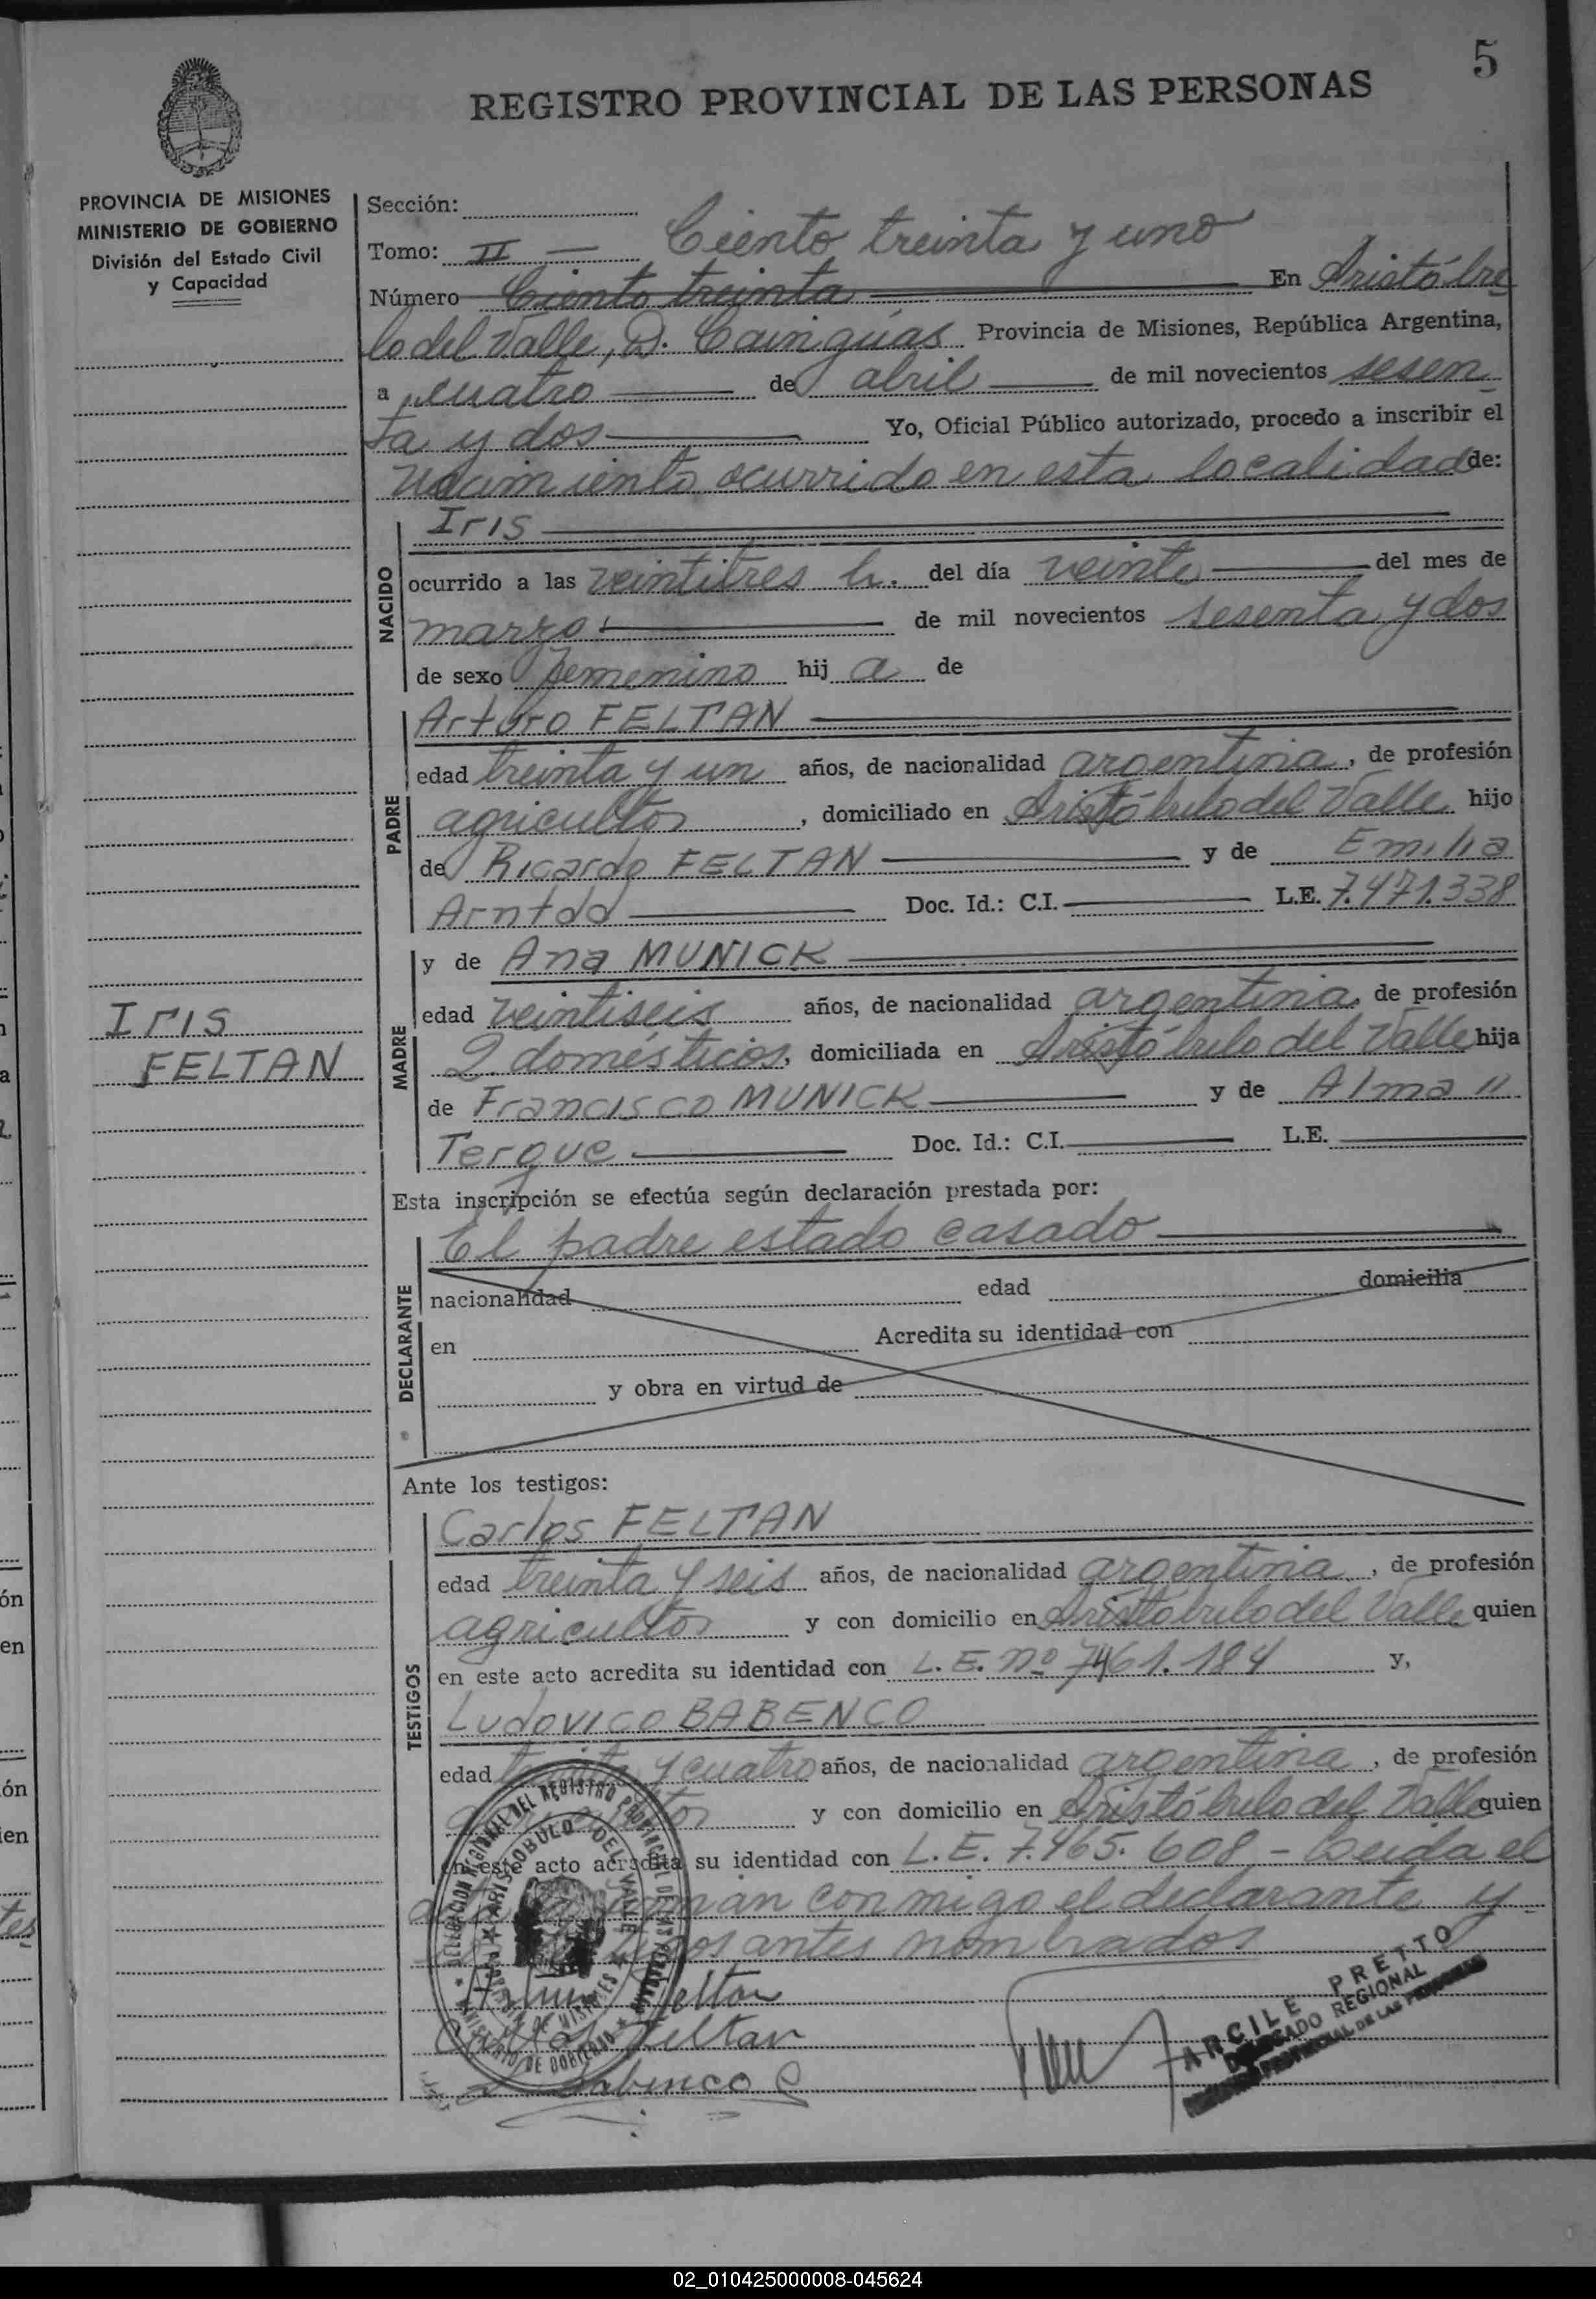 5
REGISTRO PROVINCIAL DE LAS PERSONAS
PROVINCIA DE MISIONES
MINISTERIO DE GOBIERNO
División del Estado Civil
y Capacidad
Sección:
Tomo: II — Ciento treinta y uno
Número Ciento treinta En Aristóbu
lo del Valle, D. Cainguás Provincia de Misiones, República Argentina,
a cuatro de abril de mil novecientos sesen
ta y dos Yo, Oficial Público autorizado, procedo a inscribir el
nacimiento ocurrido en esta localidad de:
NACIDO
Iris
ocurrido a las veintitres h. del día veinte del mes de
marzo de mil novecientos sesenta y dos
de sexo femenino hij a de
PADRE
Arturo FELTAN
edad treinta y un años, de nacionalidad argentina, de profesión
agricultor, domiciliado en Aristóbulo del Valle hijo
de Ricardo FELTAN y de Emilia
Arntdd Doc. Id.: C.I. L.E. 7.471.338
MADRE
y de Ana MUNICK
edad veintiseis años, de nacionalidad argentina, de profesión
Q. domésticos, domiciliada en Aristóbulo del Valle hija
de Francisco MUNICK y de Alma "
Tergue Doc. Id.: C.I. L.E.
Iris
FELTAN
Esta inscripción se efectúa según declaración prestada por:
DECLARANTE
El padre estado casado
nacionalidad edad domicilia
en Acredita su identidad con
y obra en virtud de
Ante los testigos:
TESTIGOS
Carlos FELTAN
edad treinta y seis años, de nacionalidad argentina, de profesión
agricultor y con domicilio en Aristóbulo del Valle quien
en este acto acredita su identidad con L.E. Nº 7461.184 y,
Ludovico BABENCO
edad treinta y cuatro años, de nacionalidad argentina, de profesión
y con domicilio en Aristóbulo del Valle quien
en este acto acredita su identidad con L.E. 7.465.608 - Leida el
conmigo el declarante y
antes nombrados
Arturo Feltan
Carlos Feltan
Babenco
DELEGACION REGIONAL DEL REGISTRO PROVINCIAL DE LAS PERSONAS
ARISTOBULO DEL VALLE
MINISTERIO DE GOBIERNO
ARCILE PRETTO
DELEGADO REGIONAL
PROVINCIAL DE LAS PERSONAS
02_010425000008-045624